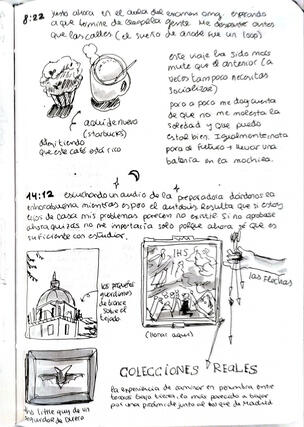 8:22
justo ahora en el aula que examen
a que termine de
gente. Me desperté antes
que las calles (el sueño de anoche fue un loop)
este viaje ha sido más
mute que el anterior (a
veces tampoco necesitas
socializar)
poco a poco me doy cuenta
de que no me molesta la
soledad y que puedo
estar bien. Igualmente nota
para el futuro → llevar una
batería en la mochila.
aquí de nuevo
(starbucks)
admitiendo
que este café está rico
14:12 escuchando un audio de la preparadora dándonos la
enhorabuena mientras espero el autobús. Resulta que si estoy
lejos de casa mis problemas parecen no existir. Si no aprobase
ahora quizás no me importaría solo porque ahora sé que es
suficiente con estudiar.
los pequeños
de bronce
sobre el
tejado
IHS
las flechas
(llorar aquí)
this little guy de un
de Durero
COLECCIONES REALES
la experiencia de caminar en penumbra entre
tesoros bajo tierra, lo más parecido a bajar
por una pirámide junto al
de Madrid